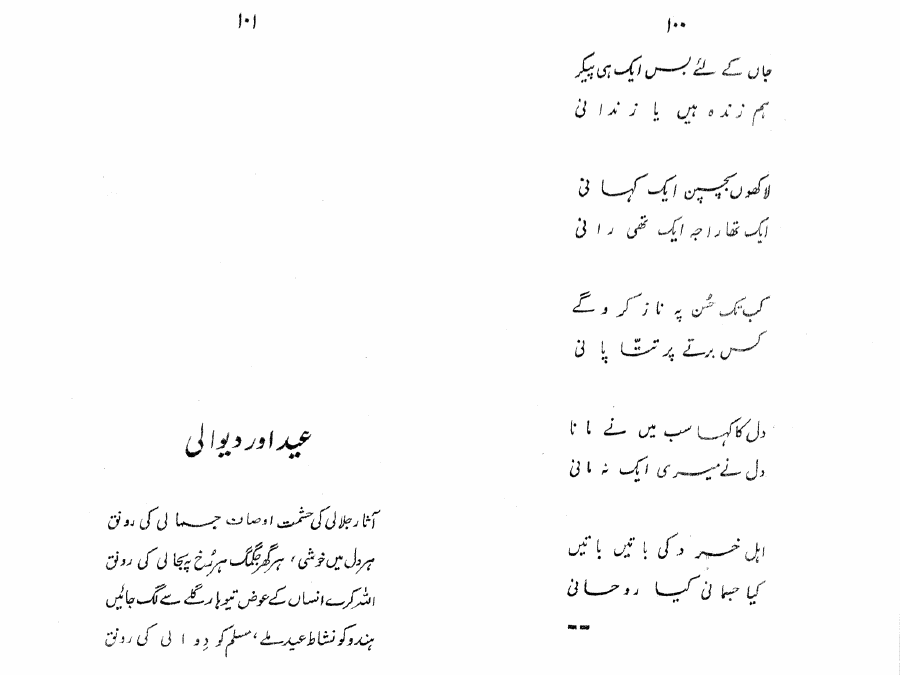 ۱۰۰
جاں کے لئے بس ایک ہی پیکر
ہم زندہ ہیں یا زندانی
لاکھوں بچپن ایک کہانی
ایک تھا راجہ ایک تھی رانی
کب تک حُسن پہ ناز کروگے
کس برتے پر تتّا پانی
دل کا کہا سب میں نے مانا
دل نے میری ایک نہ مانی
اہل خرد کی باتیں باتیں
کیا جسمانی کیا روحانی
۱۰۱
عید اور دیوالی
آثار جلالی کی حشمت اوصاف جمالی کی رونق
ہر دل میں خوشی، ہر گھر جگمگ ہر رُخ پہ بحالی کی رونق
اللہ کرے انساں کے عوض تیوہار گلے سے لگ جائیں
ہندو کو نشاط عید ملے، مسلم کو دِوالی کی رونق